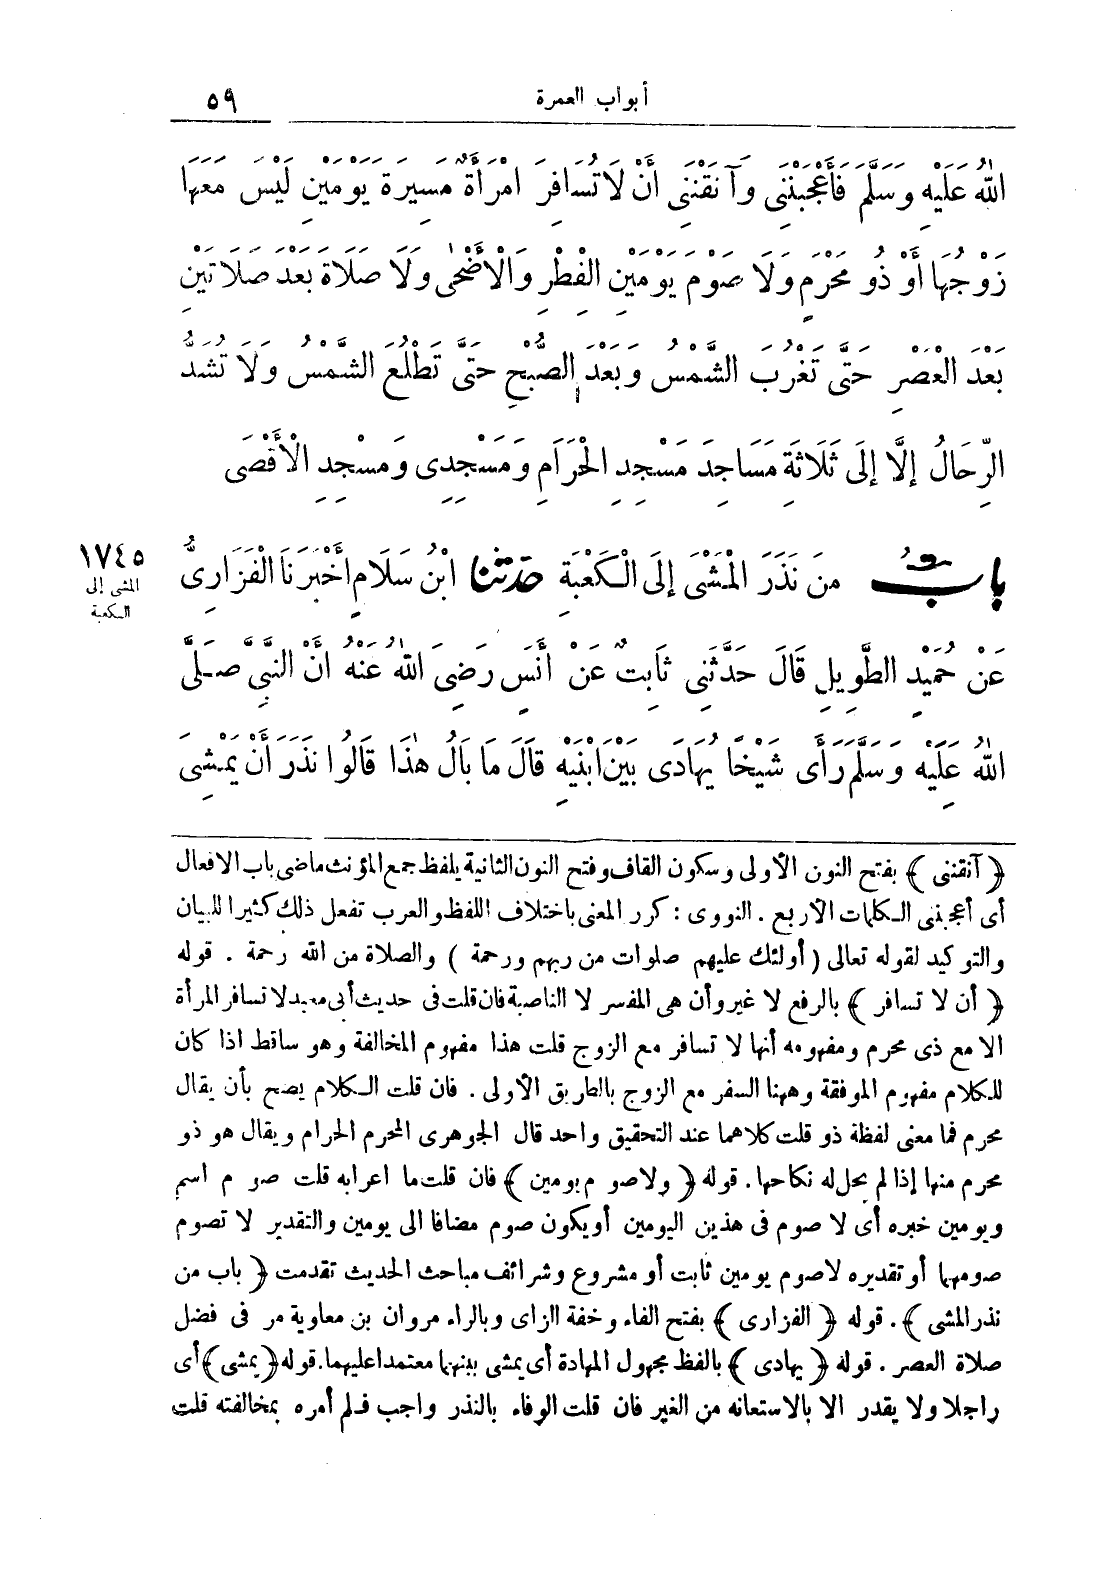 أبواب العمرة ٥٩
اللهُ عَلَيْهِ وَسَلَّمَ فَأَعْجَبْنَنِى وَآنَقْنَنِى أَنْ لَا تُسَافِرَ امْرَأَةٌ مَسِيرَةَ يَوْمَيْنِ لَيْسَ مَعَهَا
زَوْجُهَا أَوْ ذُو مَحْرَمٍ وَلَا صَوْمَ يَوْمَيْنِ الْفِطْرِ وَالْأَضْحَى وَلَا صَلَاةَ بَعْدَ صَلَاتَيْنِ
بَعْدَ الْعَصْرِ حَتَّى تَغْرُبَ الشَّمْسُ وَبَعْدَ الصُّبْحِ حَتَّى تَطْلُعَ الشَّمْسُ وَلَا تُشَدُّ
الرِّحَالُ إِلَّا إِلَى ثَلَاثَةِ مَسَاجِدَ مَسْجِدِ الْحَرَامِ وَمَسْجِدِى وَمَسْجِدِ الْأَقْصَى
بَابُ مَنْ نَذَرَ الْمَشْىَ إِلَى الْكَعْبَةِ حَدَّثَنَا ابْنُ سَلَامٍ أَخْبَرَنَا الْفَزَارِىُّ
١٧٤٥
المشى إلى
الكعبة
عَنْ حُمَيْدٍ الطَّوِيلِ قَالَ حَدَّثَنِى ثَابِتٌ عَنْ أَنَسٍ رَضِىَ اللهُ عَنْهُ أَنَّ النَّبِىَّ صَلَّى
اللهُ عَلَيْهِ وَسَلَّمَ رَأَى شَيْخًا يُهَادَى بَيْنَ ابْنَيْهِ قَالَ مَا بَالُ هٰذَا قَالُوا نَذَرَ أَنْ يَمْشِىَ
﴿آنقننى﴾ بفتح النون الأولى وسكون القاف وفتح النون الثانية بلفظ جمع المؤنث ماضى باب الافعال
أى أعجبنى الكلمات الأربع . النووى : كرر المعنى باختلاف اللفظ والعرب تفعل ذلك كثيرا للبيان
والتوكيد لقوله تعالى ( أولئك عليهم صلوات من ربهم ورحمة ) والصلاة من الله رحمة . قوله
﴿ أن لا تسافر ﴾ بالرفع لا غير وأن هى المفسر لا الناصبة فان قلت فى حديث أبى معبد لا تسافر المرأة
الا مع ذى محرم ومفهومه أنها لا تسافر مع الزوج قلت هذا مفهوم المخالفة وهو ساقط اذا كان
للكلام مفهوم الموفقة وههنا السفر مع الزوج بالطريق الأولى . فان قلت الكلام يصح بأن يقال
محرم فما معنى لفظة ذو قلت كلاهما عند التحقيق واحد قال الجوهرى المحرم الحرام ويقال هو ذو
محرم منها إذا لم يحل له نكاحها . قوله ﴿ ولا صوم يومين ﴾ فان قلت ما اعرابه قلت صوم اسم
ويومين خبره أى لا صوم فى هذين اليومين أو يكون صوم مضافا الى يومين والتقدير لا تصوم
صومهما أو تقديره لا صوم يومين ثابت أو مشروع وشرائف مباحث الحديث تقدمت ﴿ باب من
نذر المشى ﴾ . قوله ﴿ الفزارى ﴾ بفتح الفاء وخفة الزاى وبالراء مروان بن معاوية مر فى فضل
صلاة العصر . قوله ﴿ يهادى ﴾ بالفظ مجهول المهادة أى يمشى بينهما معتمدا عليهما . قوله ﴿ يمشى ﴾ أى
راجلا ولا يقدر الا بالاستعانه من الغير فان قلت الوفاء بالنذر واجب فلم أمره بمخالفته قلت